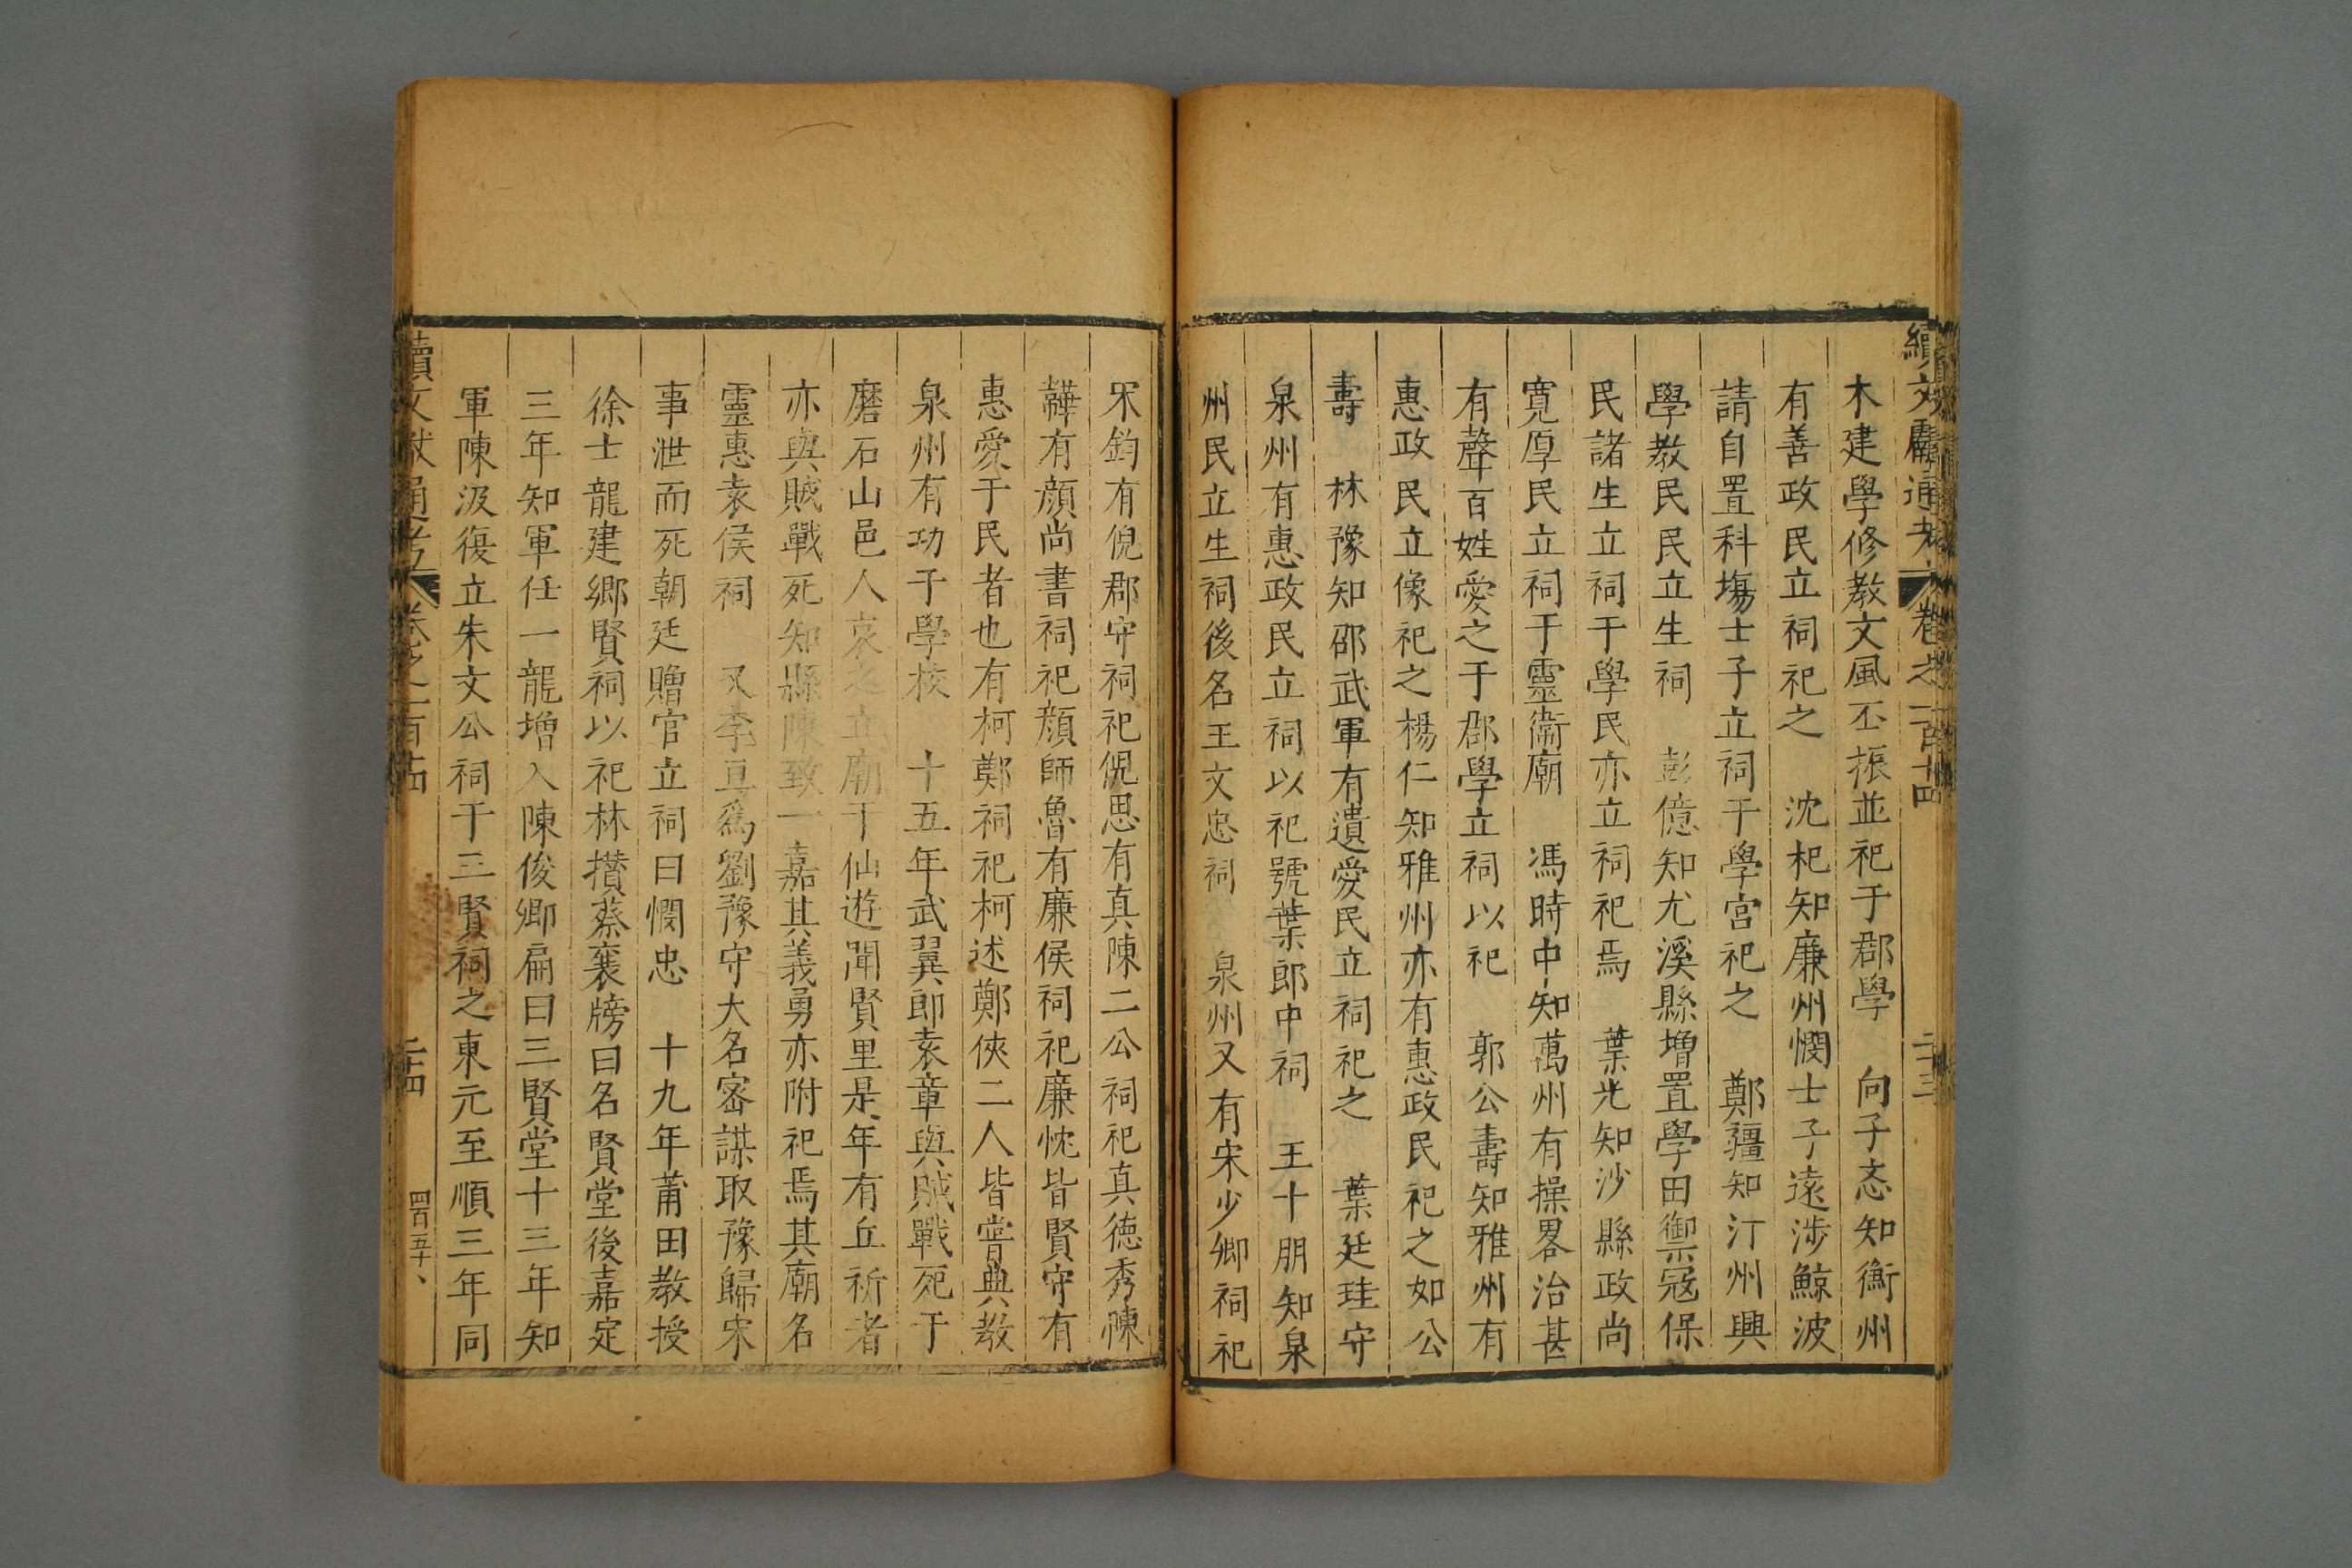 續文獻通考 卷之一百十四 二十三
木建學修教文風丕振並祀于郡學　向子忞知衡州
有善政民立祠祀之　沈杞知廉州憫士子遠涉鯨波
請自置科塲士子立祠于學宮祀之　鄭彊知汀州興
學教民民立生祠　彭億知尤溪縣增置學田禦冦保
民諸生立祠于學民亦立祠祀焉　葉光知沙縣政尚
寛厚民立祠于靈衞廟　馮時中知萬州有操畧治甚
有聲百姓愛之于郡學立祠以祀　郭公壽知雅州有
惠政民立像祀之楊仁知雅州亦有惠政民祀之如公
壽　林豫知邵武軍有遺愛民立祠祀之　葉廷珪守
泉州有惠政民立祠以祀號葉郎中祠　王十朋知泉
州民立生祠後名王文忠祠　泉州又有宋少卿祠祀
宋鈞有倪郡守祠祀倪思有真陳二公祠祀真德秀陳
韡有顔尚書祠祀顔師魯有廉侯祠祀廉忱皆賢守有
惠愛于民者也有柯鄭祠祀柯述鄭俠二人皆嘗典教
泉州有功于學校　十五年武翼郎袁章與賊戰死于
磨石山邑人哀之立廟于仙遊閘賢里是年有丘祈者
亦與賊戰死知縣陳致一嘉其義勇亦附祀焉其廟名
靈惠袁侯祠　又李亘爲劉豫守大名密謀取豫歸宋
事泄而死朝廷贈官立祠曰憫忠　十九年莆田教授
徐士龍建鄉賢祠以祀林攢蔡襄牓曰名賢堂後嘉定
三年知軍任一龍增入陳俊卿扁曰三賢堂十三年知
軍陳汲復立朱文公祠于三賢祠之東元至順三年同
續文獻通考 卷之一百十四 二十四 四百五十